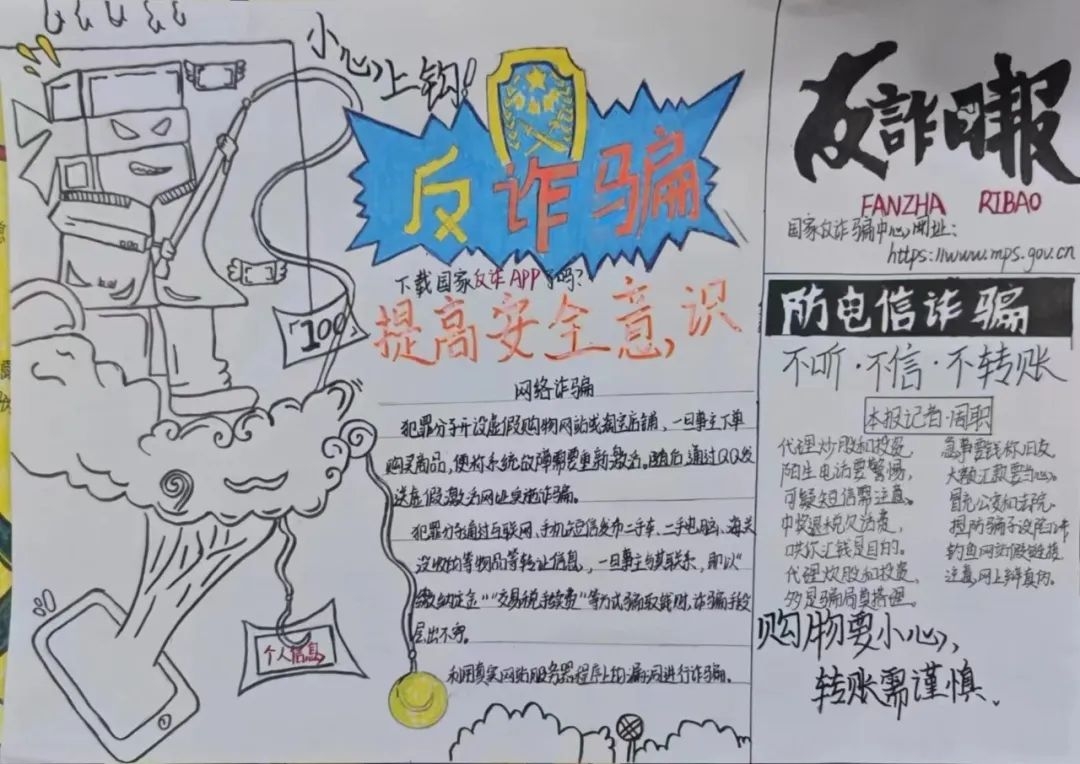 小心上钩!
反诈骗
下载国家反诈APP了吗?
提高安全意识
「100
网络诈骗
犯罪分子开设虚假购物网站或淘宝店铺，一旦事主下单
购买商品，便称系统故障需要重新激活。随后通过QQ发
送虚假激活网址实施诈骗。
犯罪分子通过互联网、手机短信发布二手车、二手电脑、海关
没收的等物品等转让信息，一旦事主与其联系，即以“
缴纳定金”“交易税手续费”等方式骗取钱财，诈骗手段
层出不穷。
利用真实网站服务器程序上的漏洞进行诈骗。
个人信息
反詐日報
FANZHA RIBAO
国家反诈骗中心网址：
https://www.mps.gov.cn
防电信诈骗
不听·不信·不转账
本报记者·周职
代理炒股和投资
陌生电话要警惕，
可疑短信需注意。
中奖退税欠话费，
哄你汇钱是目的。
代理炒股和投资，
够是骗局莫搭理。
急事要钱称旧友
大额汇款要当心。
冒充公安和法院
提防骗子设陷阱
钓鱼网站假链接
注意网上辩真伪。
购物要小心，
转账需谨慎、